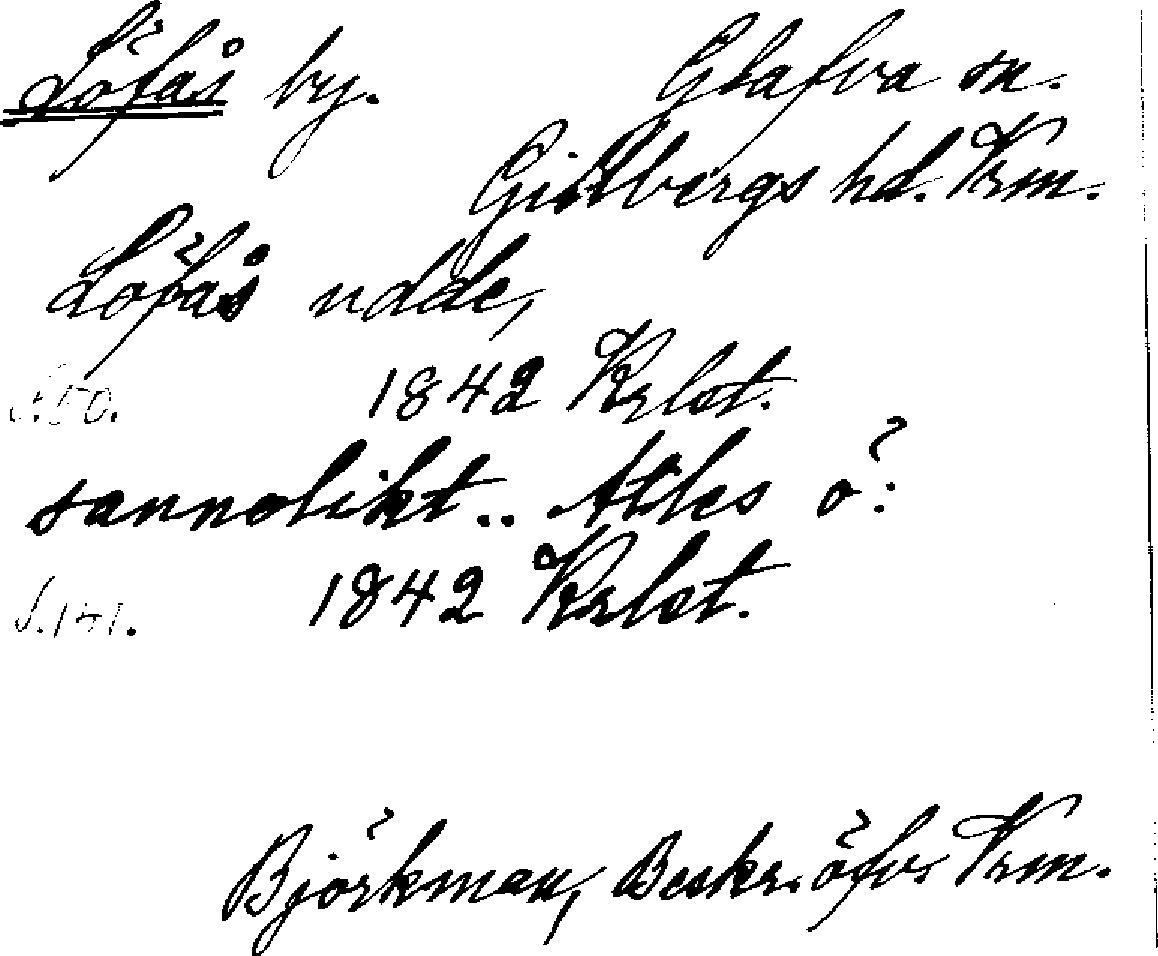 Löfås by. Glafva sn.
Gillbergs hd. Vrm.
Löfås udde,
S. 50. 1842 Krlst.
sannolikt .. Atles ö:
S. 141. 1842 Krlst.
Björkman, Beskr. öfv. Vrm.